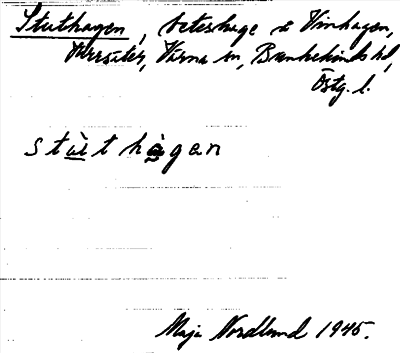 Stuthagen, beteshage å Vinhagen,
Värna sn, Bankekinds hd,
Östg. l.
stùthàgan
Maja Nordlund 1945.